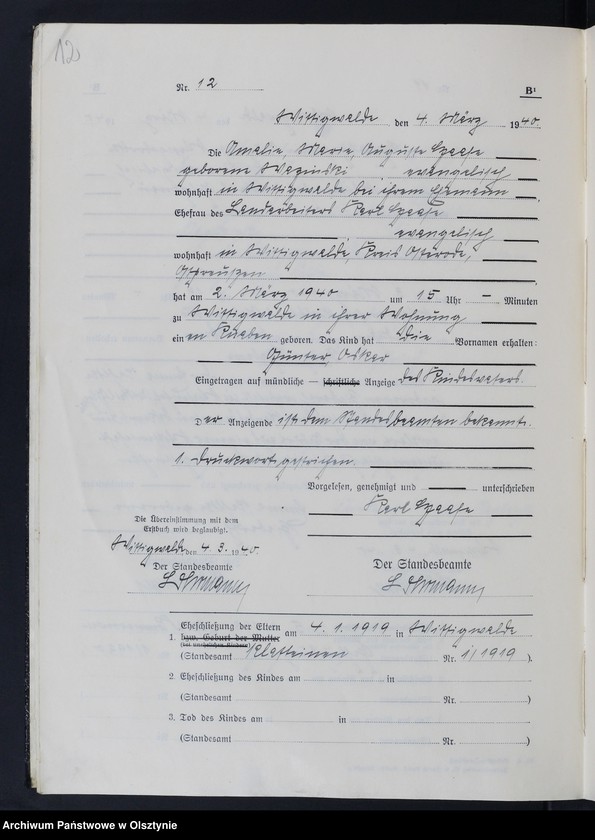 12
Nr. 12 B¹
Wittigwalde den 4. März 1940.
Die Amalie, Marie, Auguste
geborene evangelisch
wohnhaft in Wittigwalde bei ihrem Ehemann
Ehefrau des Landarbeiters Karl
evangelisch
wohnhaft in Wittigwalde, Kreis Osterode,
Ostpreußen
hat am 2. März 1940 um 15 Uhr — Minuten
zu Wittigwalde in ihrer Wohnung
einen Knaben geboren. Das Kind hat die Vornamen erhalten:
Günter, Oskar
Eingetragen auf mündliche — schriftliche Anzeige des Kindesvaters.
Der Anzeigende ist dem Standesbeamten bekannt.
1. Druckwort gestrichen.
Vorgelesen, genehmigt und unterschrieben
Karl
Die Übereinstimmung mit dem
Erstbuch wird beglaubigt.
Wittigwalde den 4. 3. 1940.
Der Standesbeamte
Der Standesbeamte
Eheschließung der Eltern
1. bzw. Geburt der Mutter am 4. 1. 1919 in Wittigwalde
(bei unehelichen Kindern)
(Standesamt Nr. 1/1919 ).
2. Eheschließung des Kindes am in
(Standesamt Nr. )
3. Tod des Kindes am in
(Standesamt Nr. )
Archiwum Państwowe w Olsztynie